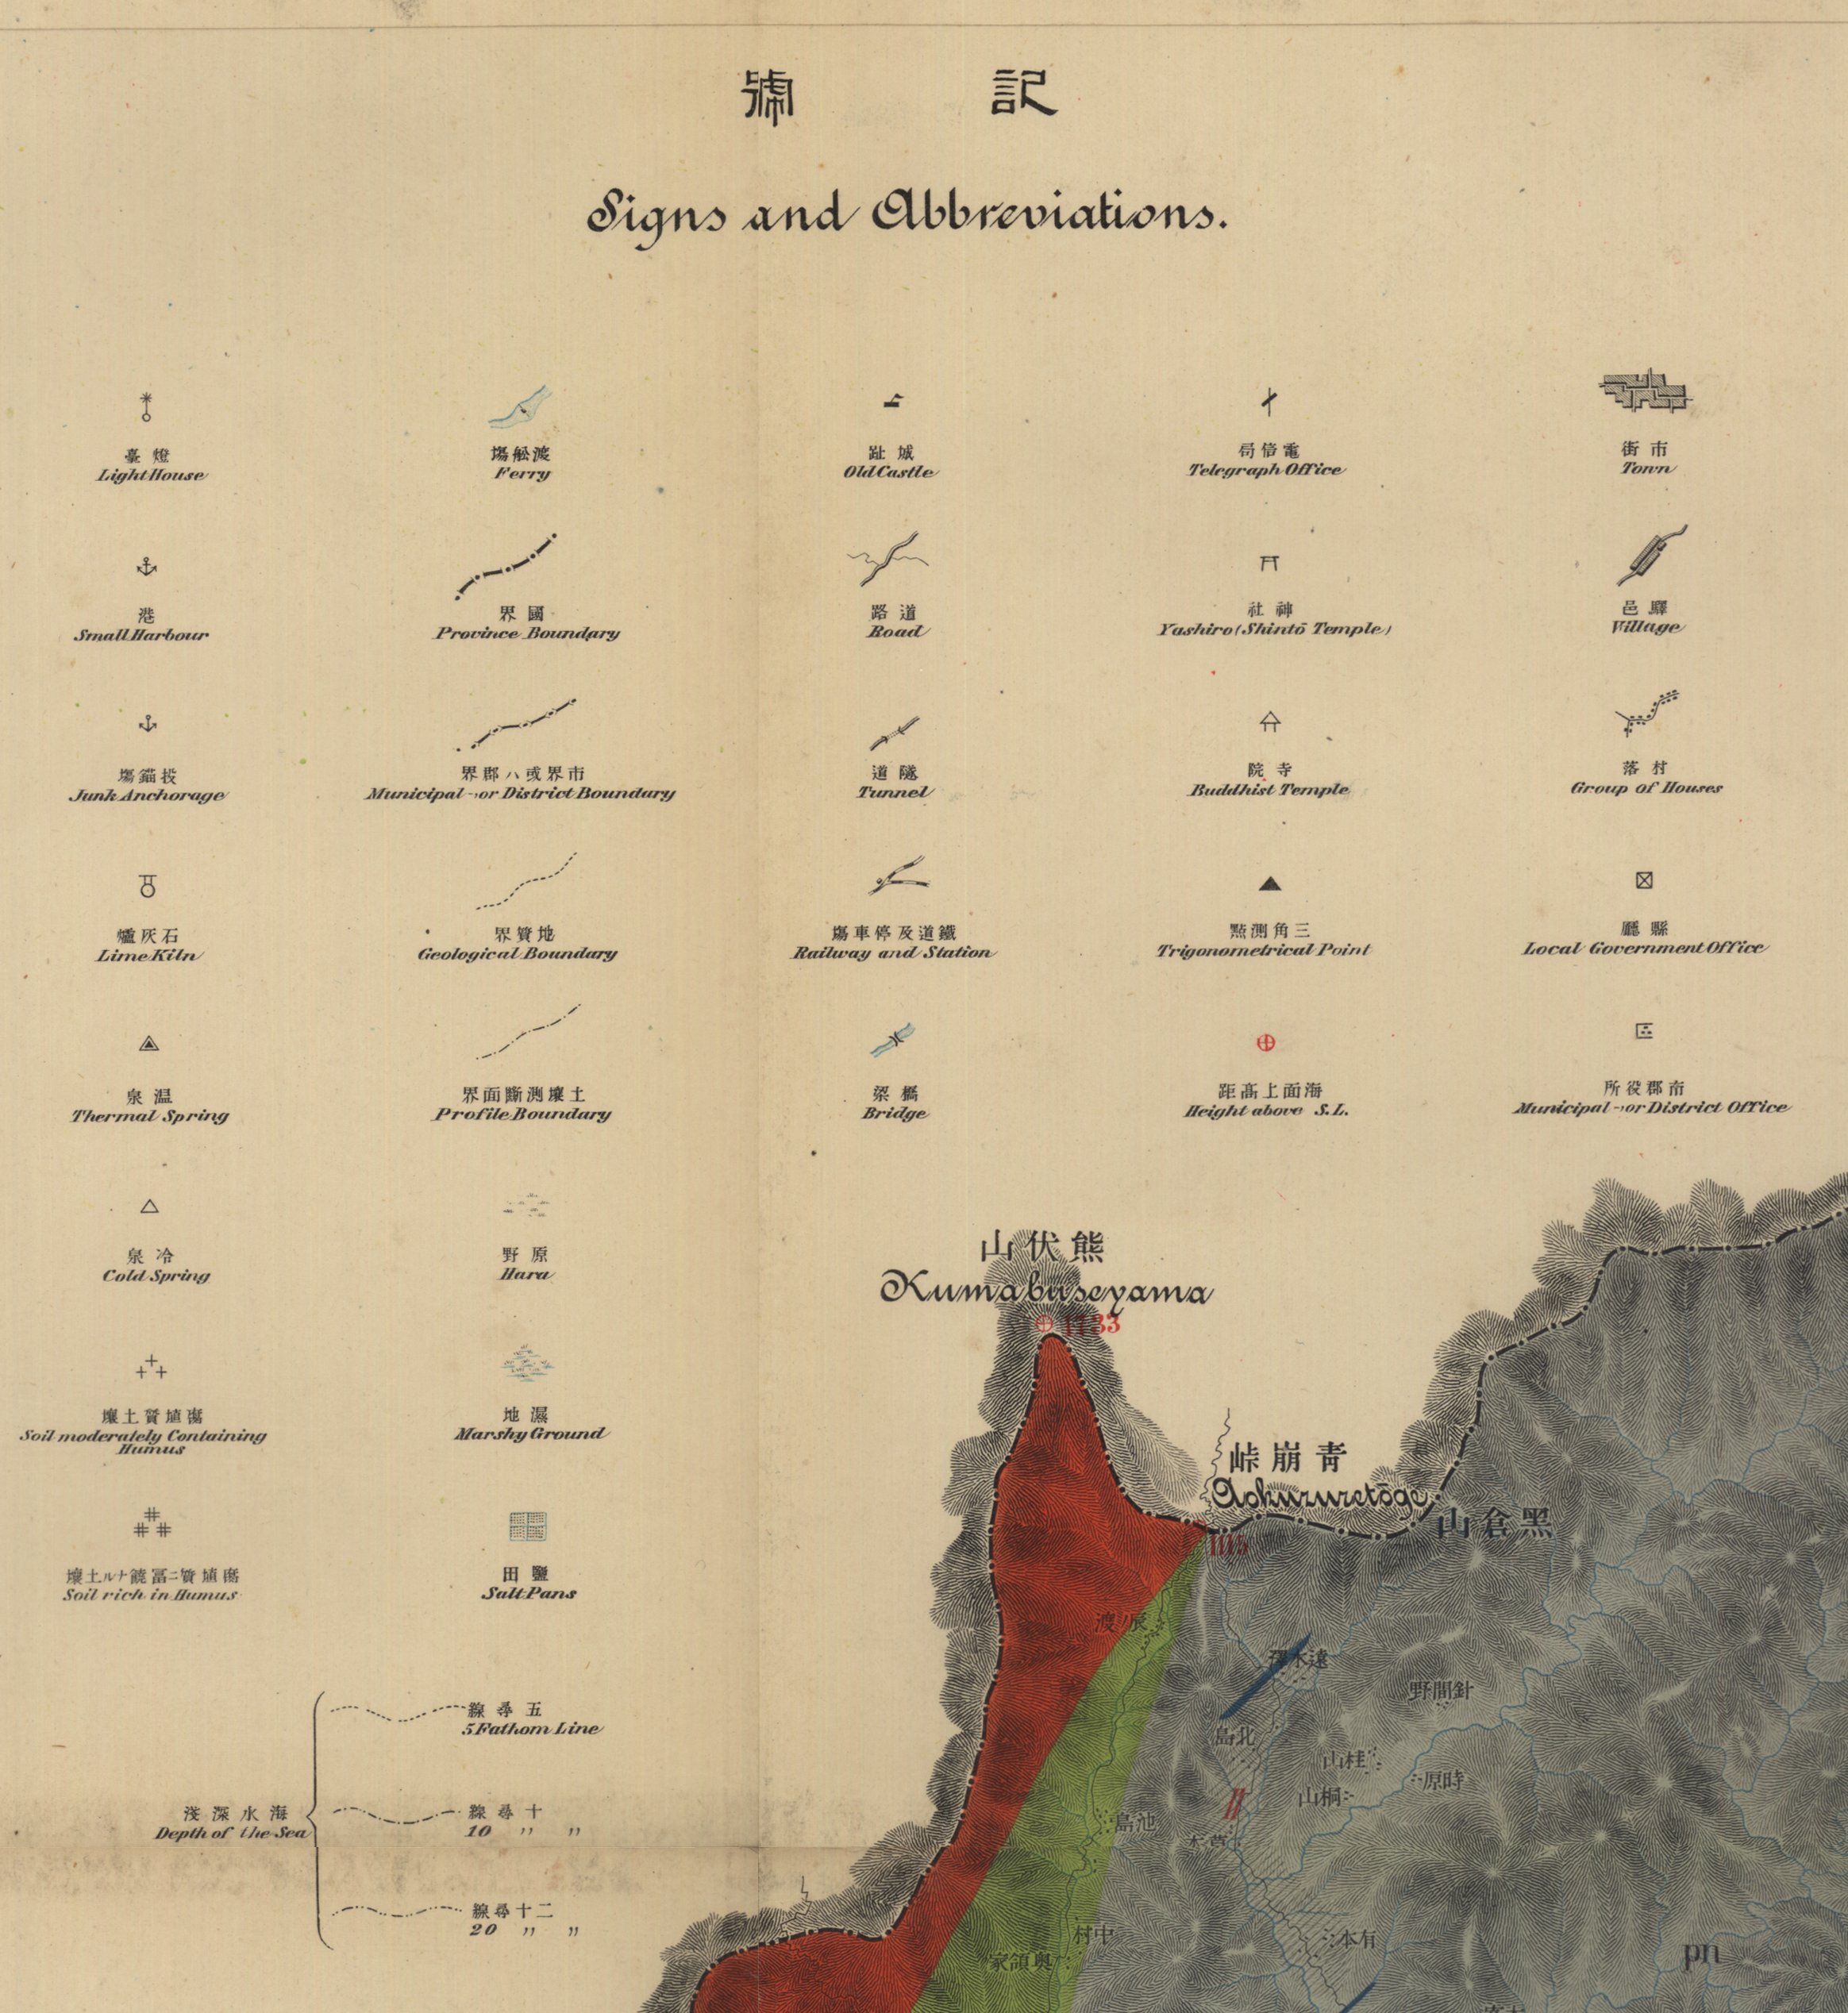 記號
Signs and Abbreviations.
燈臺
Light House
渡舩塲
Ferry
城趾
Old Castle
電信局
Telegraph Office
市街
Town
港
Small Harbour
國界
Province Boundary
道路
Road
神社
Yashiro (Shintō Temple)
驛邑
Village
投錨塲
Junk Anchorage
市界或ハ郡界
Municipal-or District Boundary
隧道
Tunnel
寺院
Buddhist Temple
村落
Group of Houses
石灰爐
Lime Kiln
地質界
Geological Boundary
鐵道及停車塲
Railway and Station
三角測點
Trigonometrical Point
縣廳
Local Government Office
温泉
Thermal Spring
土壤測斷面界
Profile Boundary
橋梁
Bridge
海面上髙距
Height above S.L.
市郡役所
Municipal-or District Office
冷泉
Cold Spring
原野
Hara
腐埴質土壤
Soil moderately Containing
Humus
濕地
Marshy Ground
腐埴質ニ冨饒ナル土壤
Soil rich in Humus
鹽田
Salt Pans
海水深淺
Depth of the Sea
五尋線
5 Fathom Line
十尋線
10 〃 〃
二十尋線
20 〃 〃
熊伏山
Kumabuseyama
1733
青崩峠
Aokuzuretōge
黑倉山
辰ノ渡
遠木澤
針間野
北島
桂山
時原
桐山
池島
草木
有本
中村
奥領家
pn